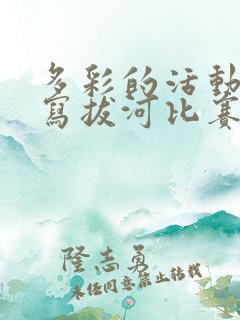 多彩的活動
寫拔河比賽
隆志勇
未经同意禁止转载